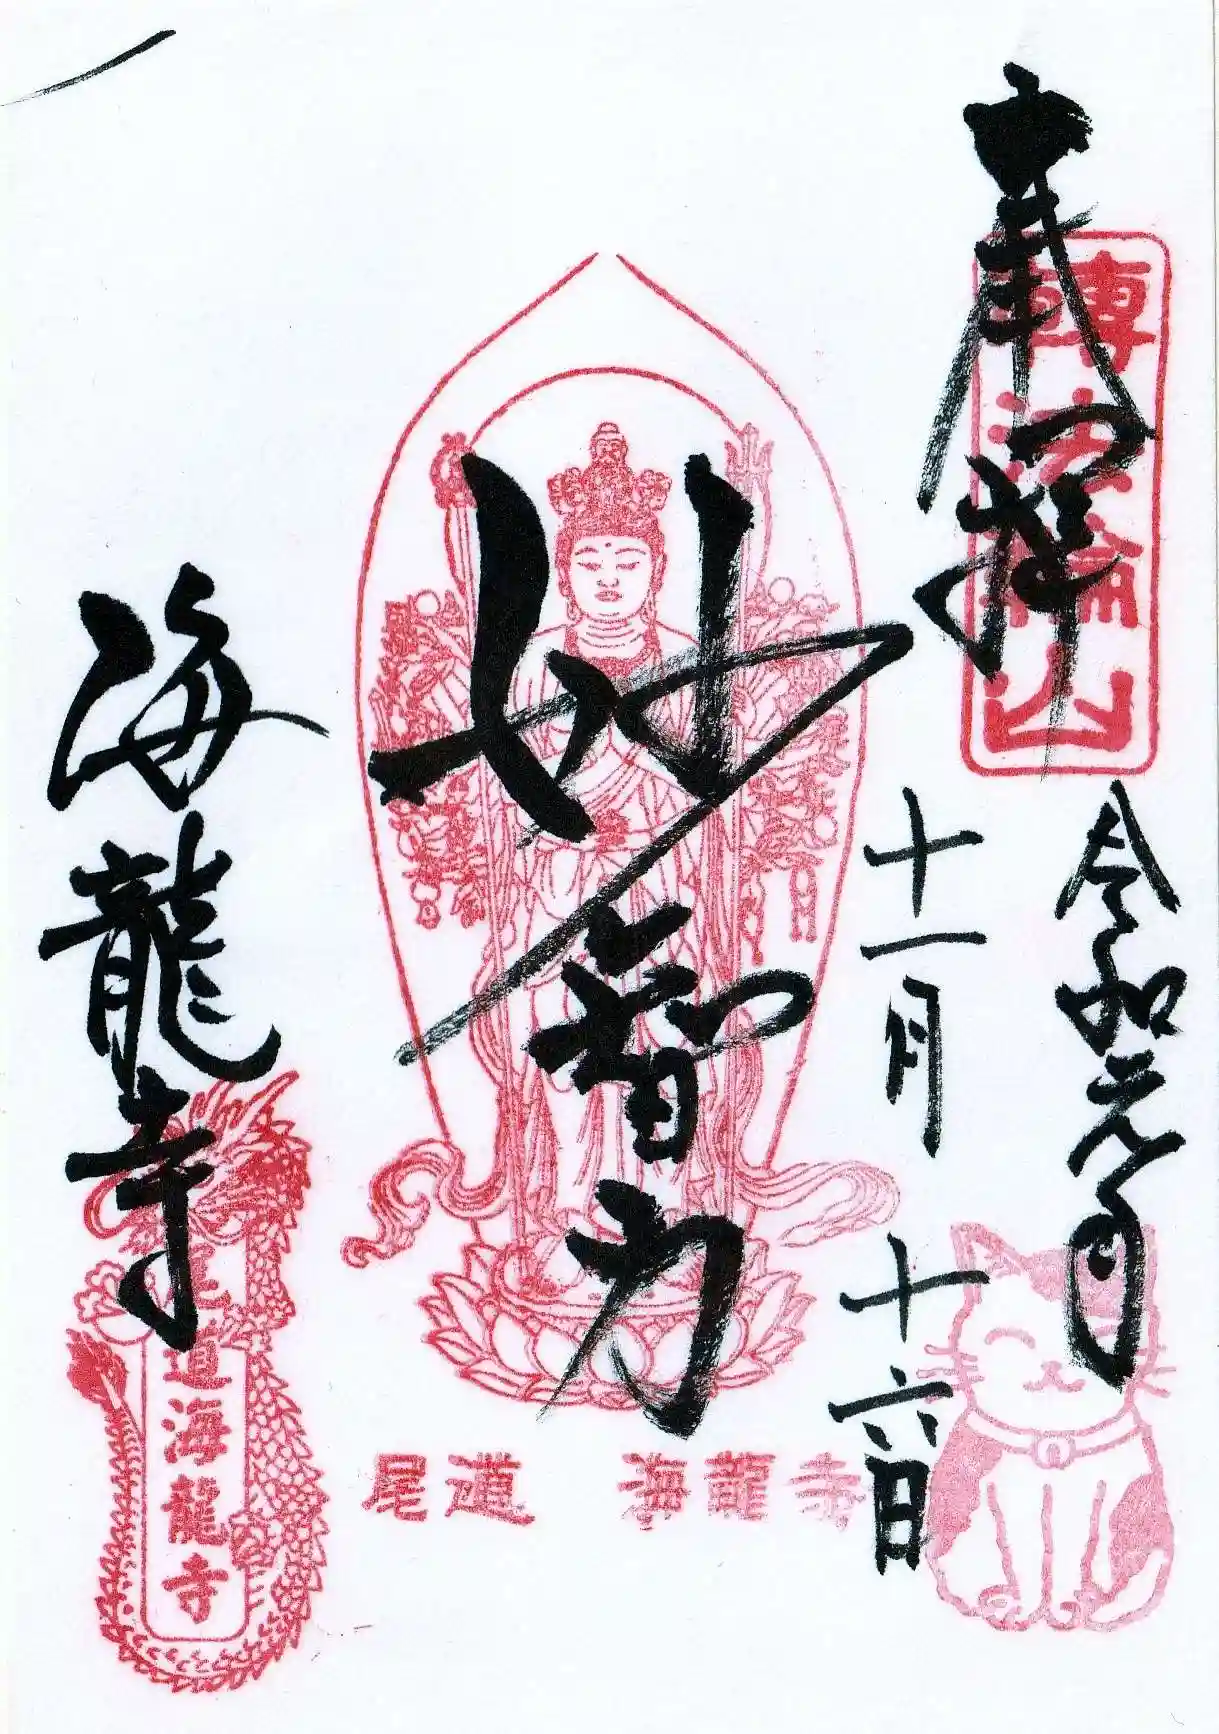 奉拝
轉法輪山
令和元年
十一月十六日
妙智力
海龍寺
尾道 海龍寺
尾道海龍寺